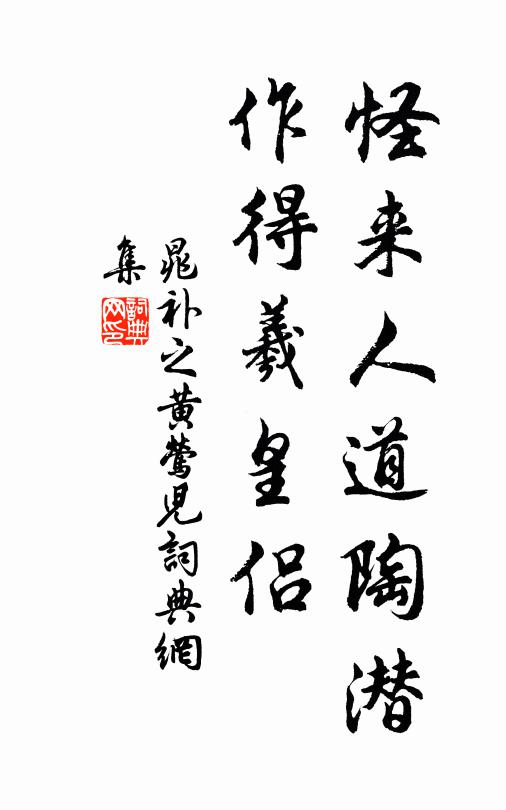 怪来人道陶潜
作得羲皇侣
晁补之黄莺兒詞典網
集
詞典网印